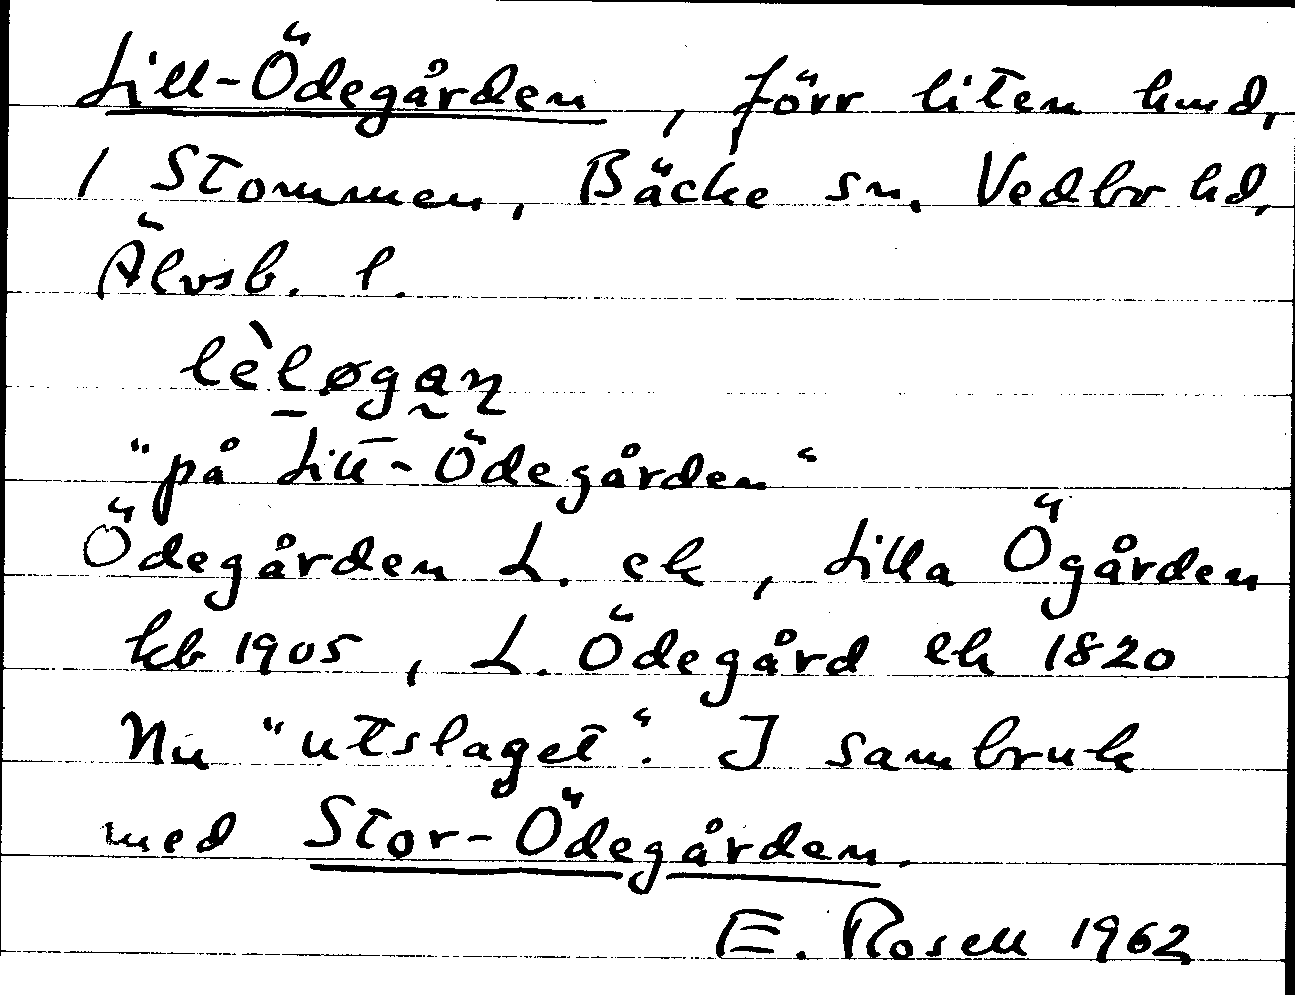 Lill-Ödegården, förr liten hmd,
1 Stommen, Bäcke sn. Vedbo hd,
Älvsb. l.
lèløgan
"på Lill-Ödegården"
Ödegården L. ek, Lilla Ögården
kb 1905, L. Ödegård ek 1820
Nu "utslaget". I sambruk
med Stor-Ödegården.
E. Rosell 1962